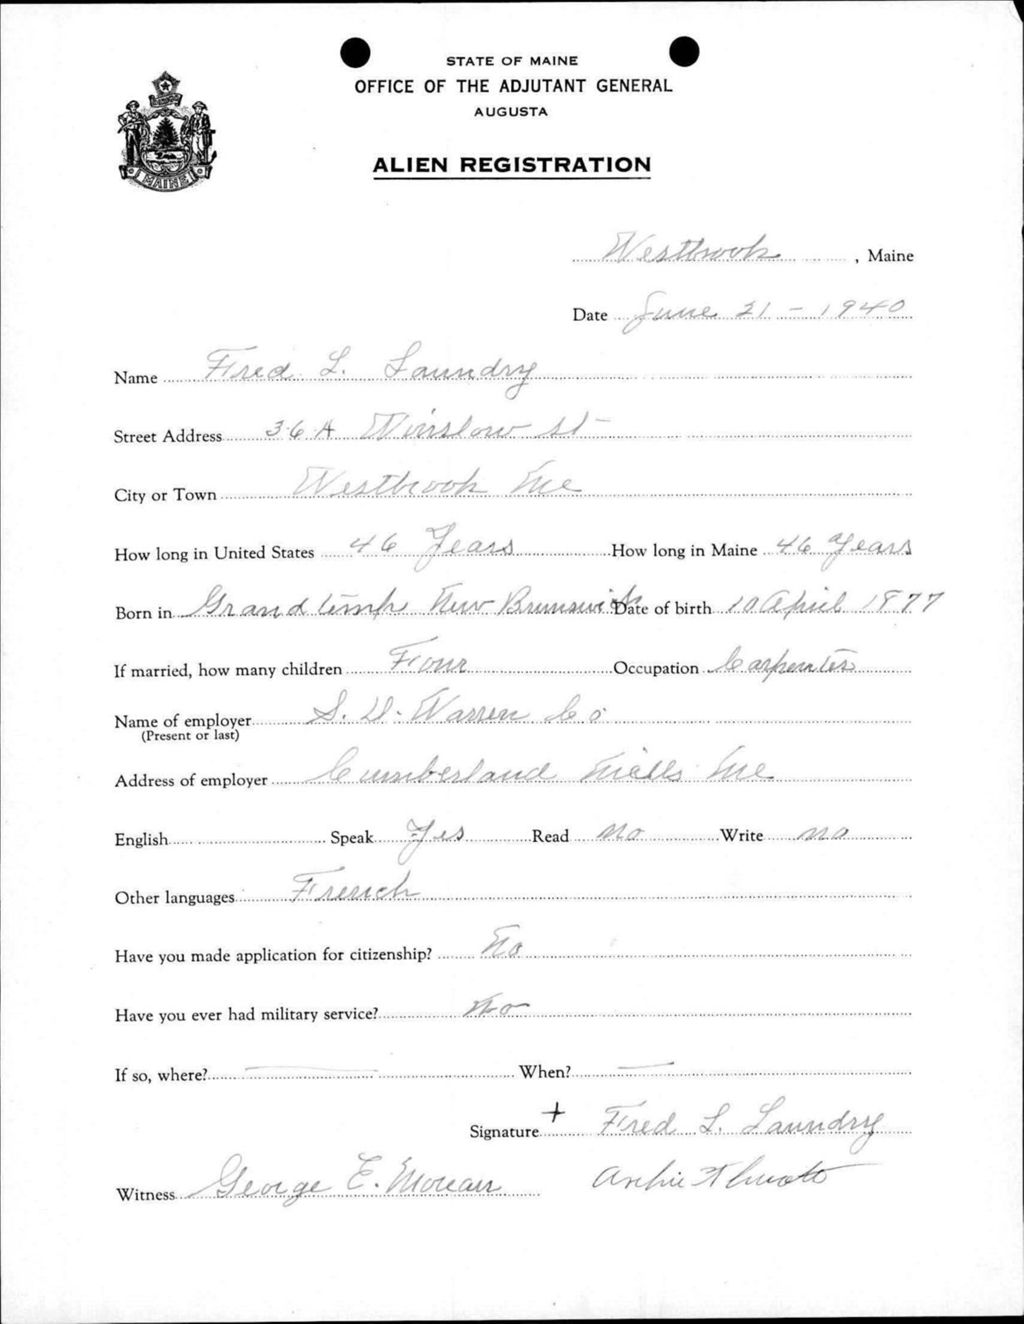 STATE OF MAINE
OFFICE OF THE ADJUTANT GENERAL
AUGUSTA
MAINE
ALIEN REGISTRATION
Westbrook, Maine
Date June 21 - 1940
Name Fred L. Laundry
Street Address 36 A Winslow St
City or Town Westbrook Me
How long in United States 46 Years How long in Maine 46 Years
Born in Grand New Brunswick Date of birth 10 April 1877
If married, how many children Four Occupation Carpenter
Name of employer S. D. Warren Co
(Present or last)
Address of employer Cumberland Mills Me
English Speak Yes Read No Write no
Other languages French
Have you made application for citizenship? No
Have you ever had military service? No
If so, where? — When? —
Signature + Fred L. Laundry
Witness George E. Archie